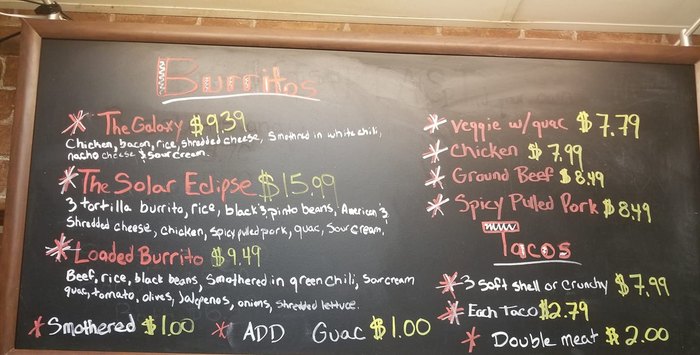 Burritos
The Galaxy $9.39
Chicken, bacon, rice, shredded cheese, Smothered in white chili,
nacho cheese & Sour cream.
The Solar Eclipse $15.99
3 tortilla burrito, rice, black & pinto beans, American &
Shredded cheese, chicken, spicy pulled pork, guac, Sour cream,
Loaded Burrito $9.49
Beef, rice, black beans, Smothered in green chili, Sour cream
guac, tomato, olives, Jalapenos, onions, shredded lettuce.
Smothered $1.00
ADD Guac $1.00
Veggie w/guac $7.79
Chicken $7.99
Ground Beef $8.49
Spicy Pulled Pork $8.49
Tacos
3 Soft shell or crunchy $7.99
Each Taco $2.79
Double meat $2.00